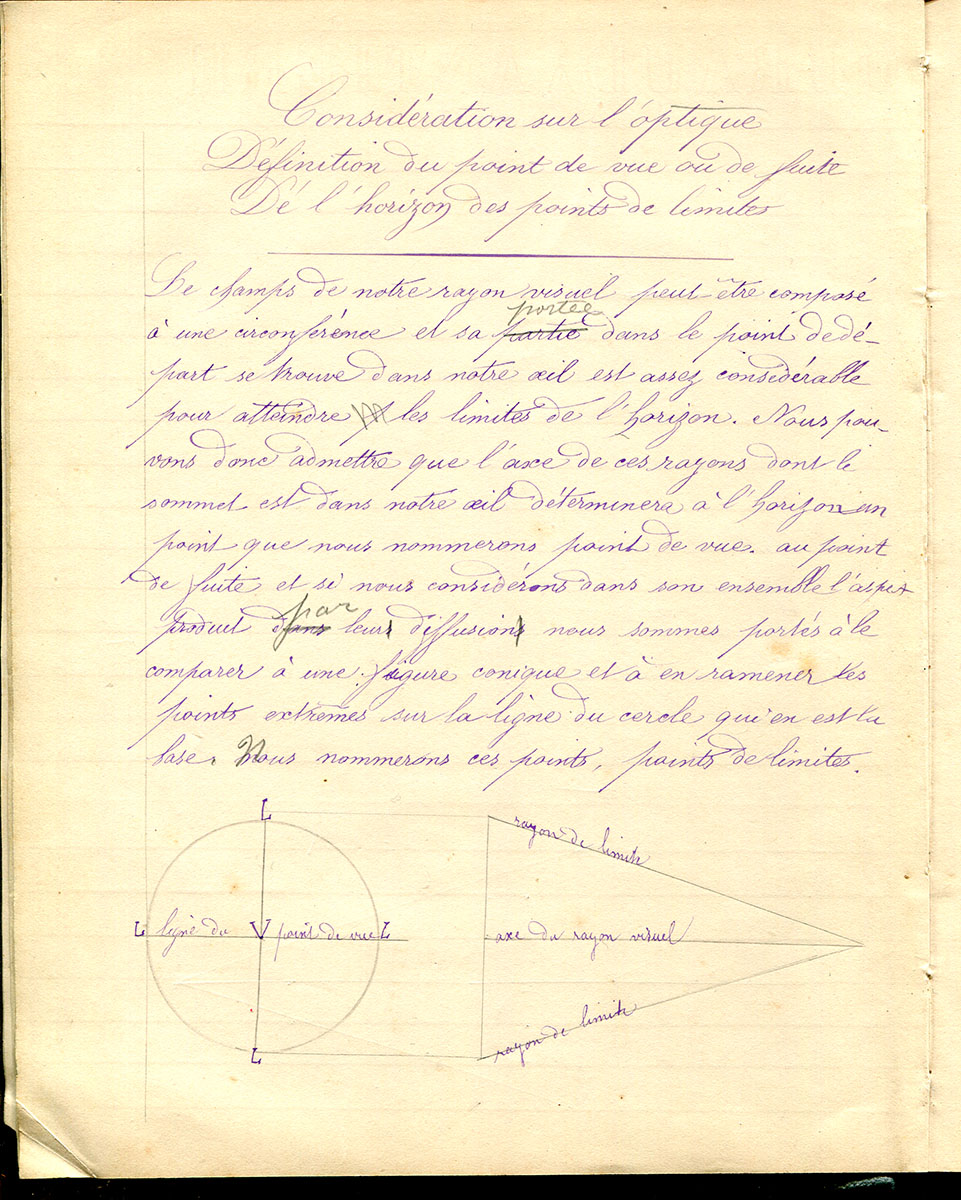 Considération sur l'optique
Définition du point de vue ou de fuite
Dé l'horizon des points de limites
Le champs de notre rayon visuel peut-être composé
portée
à une circonférence et sa partie dans le point de dé-
part se trouve dans notre œil est assez considérable
pour atteindre les limites de l'horizon. Nous pou-
vons donc admettre que l'axe de ces rayons dont le
sommet est dans notre œil déterminera à l'horizon un
point que nous nommerons point de vue. au point
de fuite et si nous considérons dans son ensemble l'aspect
par
produit dans leurs diffusions nous sommes portés à le
comparer à une figure conique et à en ramener les
points extrêmes sur la ligne du cercle qui en est la
base. Nous nommerons ces points, points de limites.
L
rayon de limite
L ligne du V point de vue L
axe du rayon visuel
L
rayon de limite